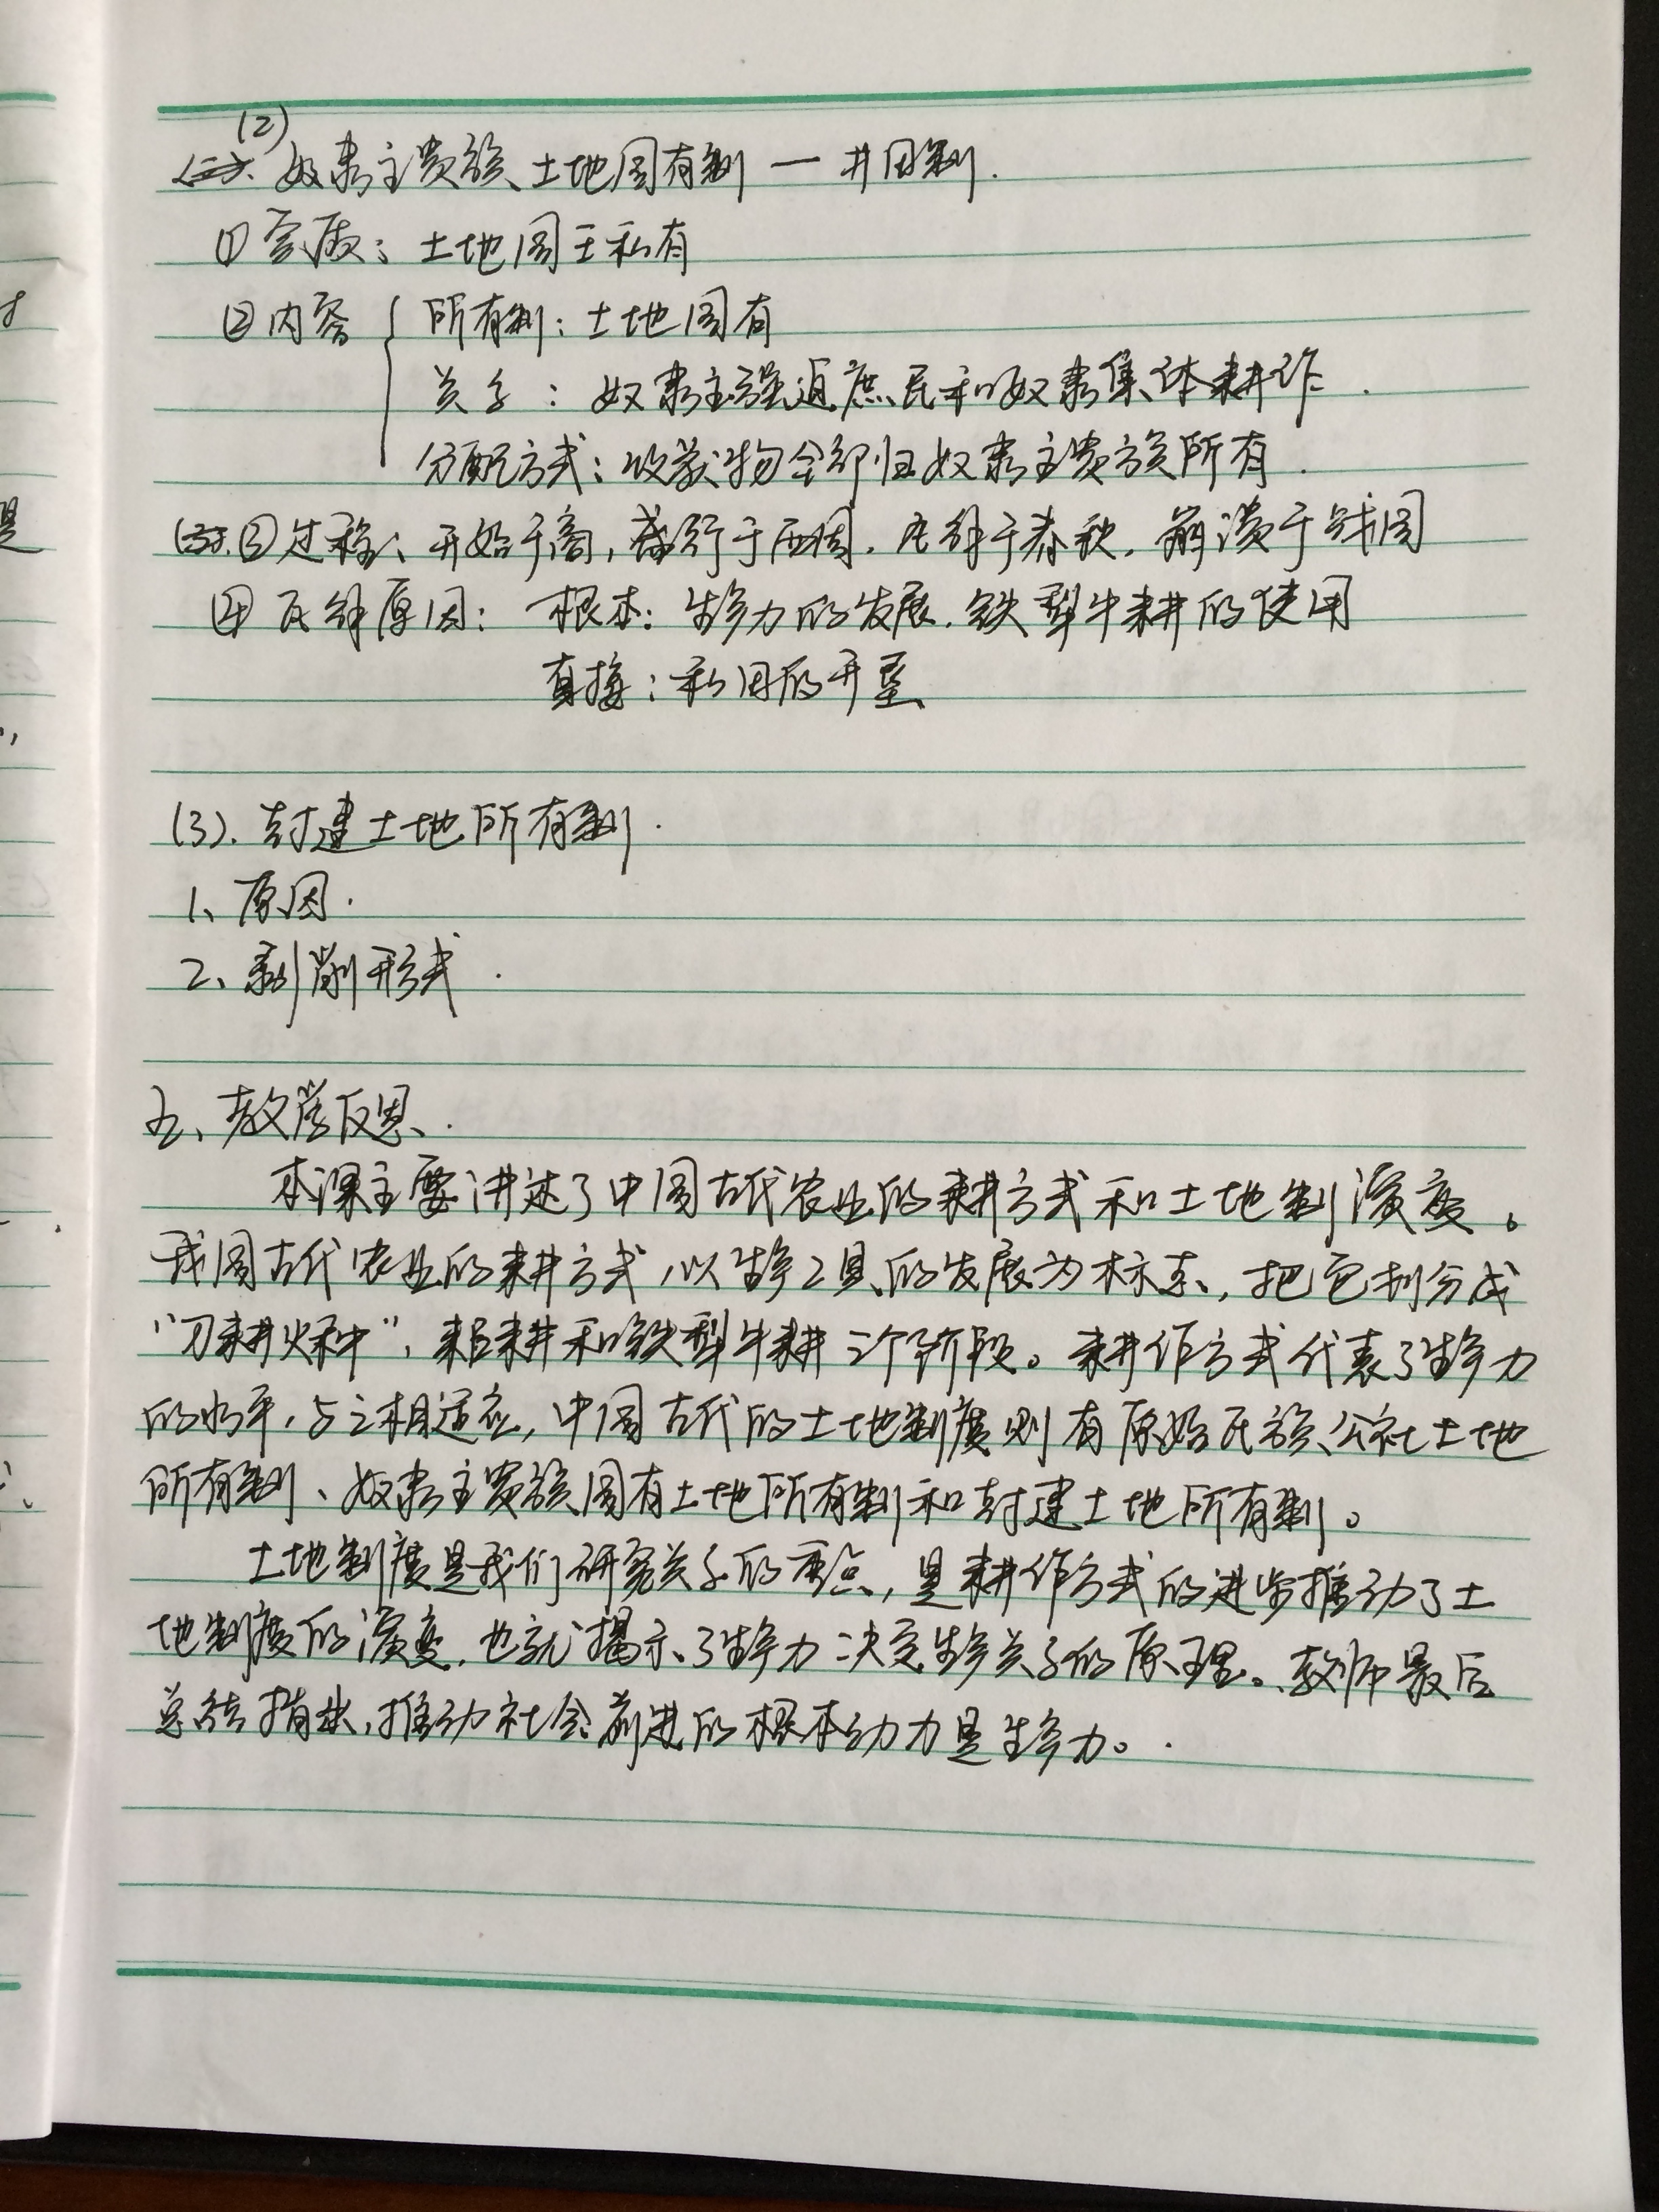 (2)
奴隶主贵族土地国有制 — 井田制.
① 实质: 土地国王私有
② 内容 { 所有制: 土地国有
关系: 奴隶主强迫庶民和奴隶集体耕作.
分配方式: 收获物全部归奴隶主贵族所有.
③ 过程: 开始于商, 盛行于西周, 瓦解于春秋, 崩溃于战国
④ 瓦解原因: 根本: 生产力的发展, 铁犁牛耕的使用
直接: 私田的开垦
(3). 封建土地所有制.
1、原因.
2、剥削形式.
五、教学反思.
本课主要讲述了中国古代农业的耕方式和土地制演变。
我国古代农业的耕方式,以生产工具的发展为标志,把它划分成
“刀耕火种”,耒耜耕和铁犁牛耕三个阶段。耕作方式代表了生产力
的水平,与之相适应,中国古代的土地制度则有原始氏族公社土地
所有制、奴隶主贵族国有土地所有制和封建土地所有制。
土地制度是我们研究关系的重点,是耕作方式的进步推动了土
地制度的演变,也就揭示了生产力决定生产关系的原理。教师最后
总结指出,推动社会前进的根本动力是生产力。